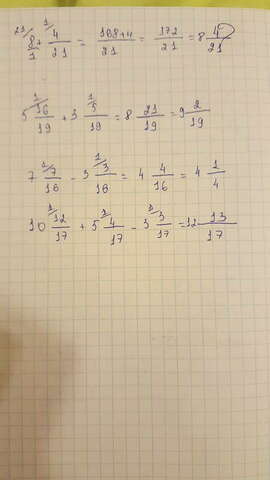 21 8/1 + 1 4/21 = 108+4/21 = 172/21 = 8 4/21
5 1 16/19 + 3 1 5/19 = 8 21/19 = 9 2/19
7 1 7/16 - 3 1 3/16 = 4 4/16 = 4 1/4
10 1 12/17 + 5 1 4/17 - 3 1 3/17 = 12 13/17